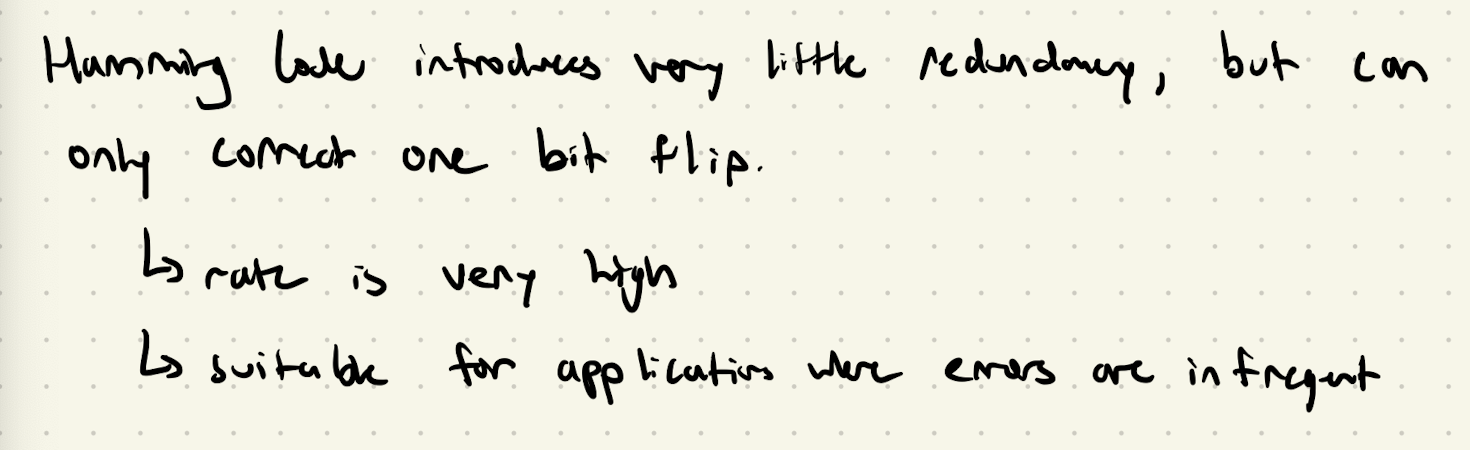 Hamming Code introduces very little redundancy, but can
only correct one bit flip.
↳ rate is very high
↳ suitable for applications where errors are infrequent